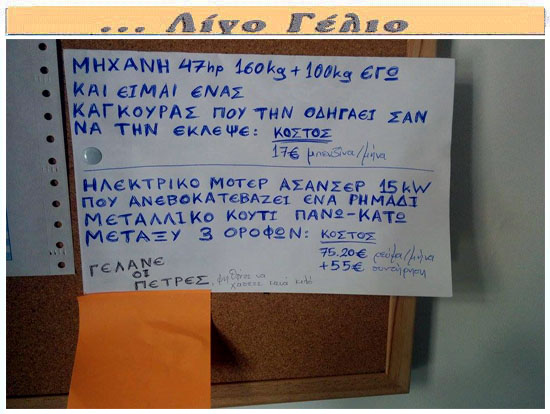 ... Λίγο Γέλιο
ΜΗΧΑΝΗ 47hp 160kg + 100kg ΕΓΩ
ΚΑΙ ΕΙΜΑΙ ΕΝΑΣ
ΚΑΓΚΟΥΡΑΣ ΠΟΥ ΤΗΝ ΟΔΗΓΑΕΙ ΣΑΝ
ΝΑ ΤΗΝ ΕΚΛΕΨΕ: ΚΟΣΤΟΣ
17€ μπενζίνα/μήνα
ΗΛΕΚΤΡΙΚΟ ΜΟΤΕΡ ΑΣΑΝΣΕΡ 15kW
ΠΟΥ ΑΝΕΒΟΚΑΤΕΒΑΖΕΙ ΕΝΑ ΡΗΜΑΔΙ
ΜΕΤΑΛΛΙΚΟ ΚΟΥΤΙ ΠΑΝΩ-ΚΑΤΩ
ΜΕΤΑΞΥ 3 ΟΡΟΦΩΝ: ΚΟΣΤΟΣ
75.20€ ρεύμα/μήνα
+55€ συντήρηση
ΓΕΛΑΝΕ
ΟΙ
ΠΕΤΡΕΣ,